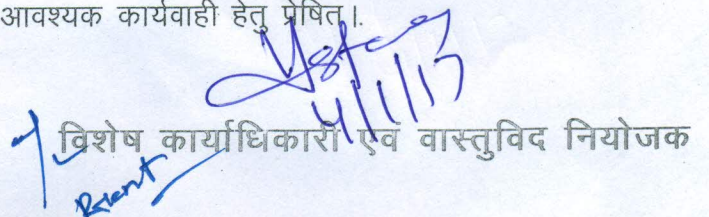 आवश्यक कार्यवाही हेतु प्रेषित।.
4/1/17
विशेष कार्याधिकारी एवं वास्तुविद नियोजक